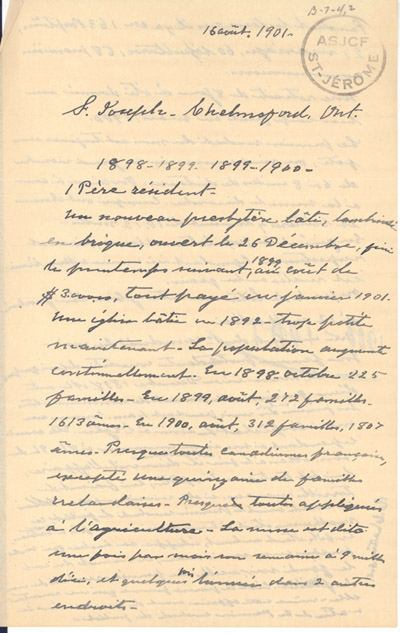 B-7-4,2
16 août, 1901.-
ASJCF
ST-JÉRÔME
S. Joseph - Chelmsford, Ont.
1898-1899. 1899-1900-
1 Père résident-
Un nouveau presbytère bâti, lambrissé
en brique, ouvert le 26 Décembre, fini
le printemps suivant, 1899 au coût de
$3.00000, tout payé en janvier 1901.
Une église bâtie en 1892 - trop petite
maintenant - La population augmente
continuellement. En 1898-octobre 225
familles - En 1899, août, 272 familles-
1613 âmes. En 1900, août, 312 familles, 1807
âmes - Presque toutes canadiennes françaises,
excepté une quinzaine de familles
irlandaises - Presque toutes appliquées
à l'agriculture - La messe est dite
une fois par mois sur semaine à 9 milles
d'ici, et quelques fois l'année dans 2 autres
endroits-